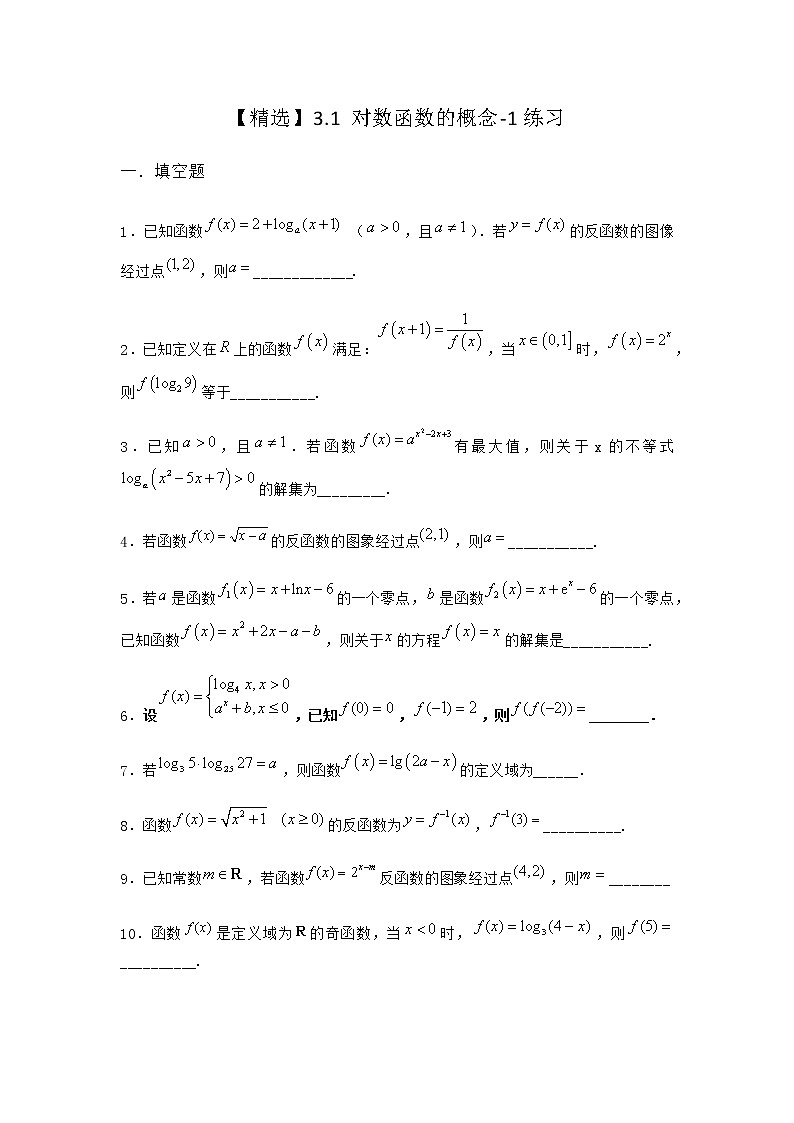 【精选】3.1 对数函数的概念-1练习
一．填空题
1.已知函数f(x)=2+logₐ(x+1)（a>0，且a≠1）. 若y=f(x)的反函数的图像
经过点(1,2)，则a=_____________.
2.已知定义在R上的函数f(x)满足：f(x+1)=1/f(x)，当x∈(0,1]时，f(x)=2^x，
则f(log₂9)等于___________.
3.已知a>0，且a≠1.若函数f(x)=a^(x²-2x+3)有最大值，则关于x的不等式
logₐ(x²-5x+7)>0的解集为_________.
4.若函数f(x)=√(x-a)的反函数的图象经过点(2,1)，则a=___________.
5.若a是函数f₁(x)=x+lnx-6的一个零点，b是函数f₂(x)=x+e^x-6的一个零点，
已知函数f(x)=x²+2x-a-b，则关于x的方程f(x)=x的解集是___________.
6.设f(x)={log₄x,x>0 a^x+b,x≤0，已知f(0)=0，f(-1)=2，则f(f(-2))=________.
7.若log₃5·log₂₅27=a，则函数f(x)=lg(2a-x)的定义域为______.
8.函数f(x)=√(x²+1) (x≥0)的反函数为y=f⁻¹(x)，f⁻¹(3)=__________.
9.已知常数m∈R，若函数f(x)=2^(x-m)反函数的图象经过点(4,2)，则m=________
10.函数f(x)是定义域为R的奇函数，当x<0时，f(x)=log₃(4-x)，则f(5)=
__________.